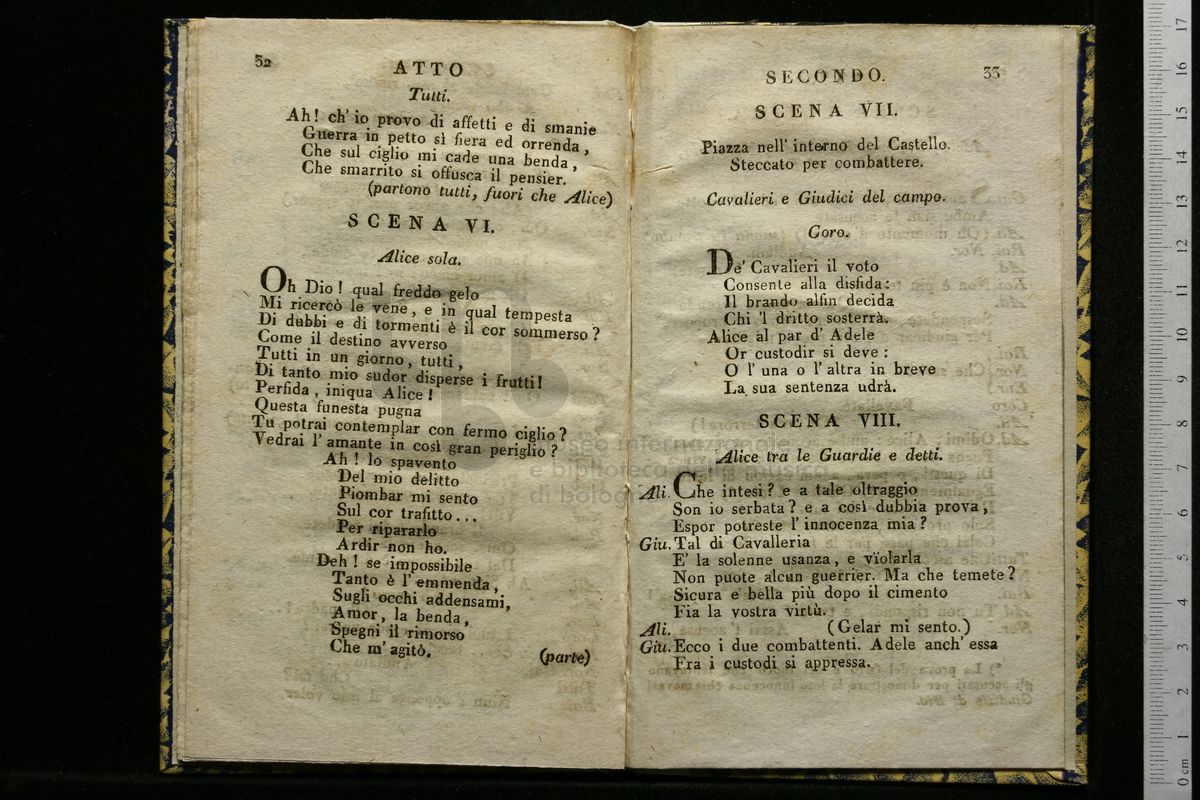 32
ATTO
Tutti.
Ah! ch' io provo di affetti e di smanie
Guerra in petto sì fiera ed orrenda,
Che sul ciglio mi cade una benda,
Che smarrito si offusca il pensier.
(partono tutti, fuori che Alice)
SCENA VI.
Alice sola.
Oh Dio! qual freddo gelo
Mi ricercò le vene, e in qual tempesta
Di dubbi e di tormenti è il cor sommerso?
Come il destino avverso
Tutti in un giorno, tutti,
Di tanto mio sudor disperse i frutti!
Perfida, iniqua Alice!
Questa funesta pugna
Tu potrai contemplar con fermo ciglio?
Vedrai l' amante in così gran periglio?
Ah! lo spavento
Del mio delitto
Piombar mi sento
Sul cor trafitto...
Per ripararlo
Ardir non ho.
Deh! se impossibile
Tanto è l' emmenda,
Sugli occhi addensami,
Amor, la benda,
Spegni il rimorso
Che m' agitò.
(parte)
SECONDO.
33
SCENA VII.
Piazza nell' interno del Castello.
Steccato per combattere.
Cavalieri e Giudici del campo.
Coro.
De' Cavalieri il voto
Consente alla disfida:
Il brando alfin decida
Chi 'l dritto sosterrà.
Alice al par d' Adele
Or custodir si deve:
O l' una o l' altra in breve
La sua sentenza udrà.
SCENA VIII.
Alice tra le Guardie e detti.
Ali. Che intesi? e a tale oltraggio
Son io serbata? e a così dubbia prova,
Espor potreste l' innocenza mia?
Giu. Tal di Cavalleria
E' la solenne usanza, e violarla
Non puote alcun guerrier. Ma che temete?
Sicura e bella più dopo il cimento
Fia la vostra virtù.
Ali. (Gelar mi sento.)
Giu. Ecco i due combattenti. Adele anch' essa
Fra i custodi si appressa.
museo internazionale
e biblioteca della musica
di bologna
0 cm 1 2 3 4 5 6 7 8 9 10 11 12 13 14 15 16 17